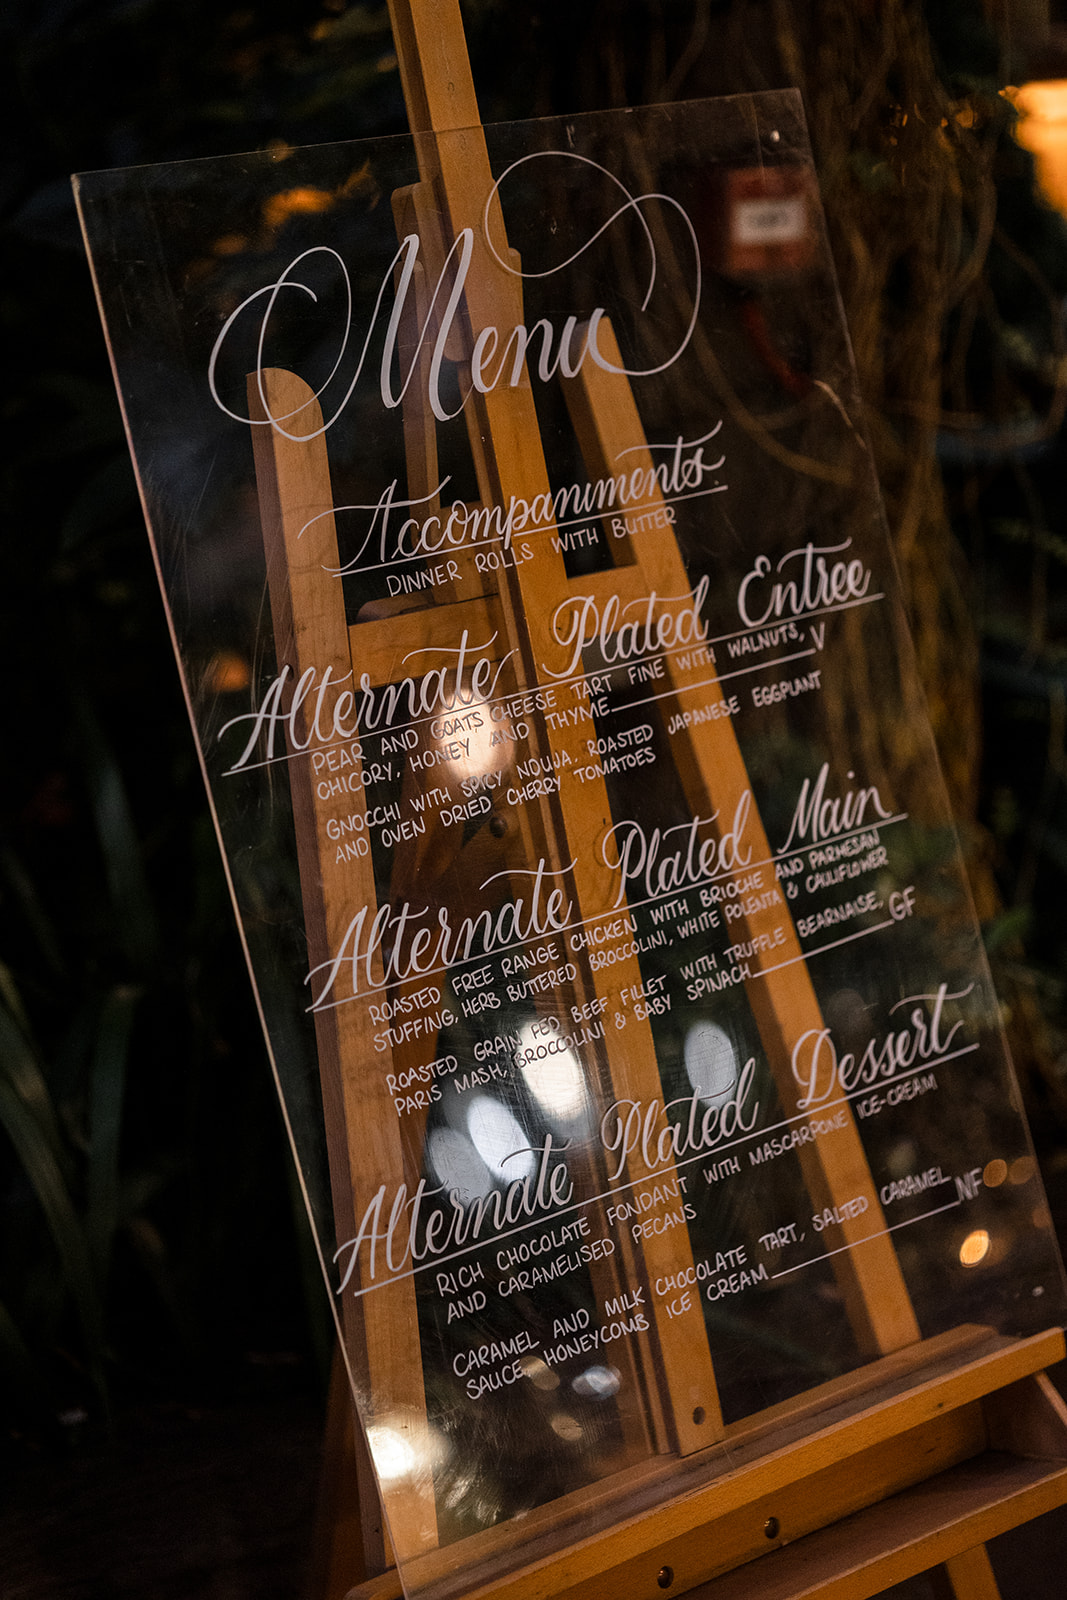 Menu
Accompaniments
DINNER ROLLS WITH BUTTER
Alternate Plated Entree
PEAR AND GOATS CHEESE TART FINE WITH WALNUTS,
CHICORY, HONEY AND THYME V
GNOCCHI WITH SPICY NDUJA, ROASTED JAPANESE EGGPLANT
AND OVEN DRIED CHERRY TOMATOES
Alternate Plated Main
ROASTED FREE RANGE CHICKEN WITH BRIOCHE AND PARMESAN
STUFFING, HERB BUTTERED BROCCOLINI, WHITE POLENTA & CAULIFLOWER
ROASTED GRAIN FED BEEF FILLET WITH TRUFFLE BEARNAISE,
PARIS MASH, BROCCOLINI & BABY SPINACH GF
Alternate Plated Dessert
RICH CHOCOLATE FONDANT WITH MASCARPONE ICE-CREAM
AND CARAMELISED PECANS
CARAMEL AND MILK CHOCOLATE TART, SALTED CARAMEL
SAUCE, HONEYCOMB ICE CREAM NF